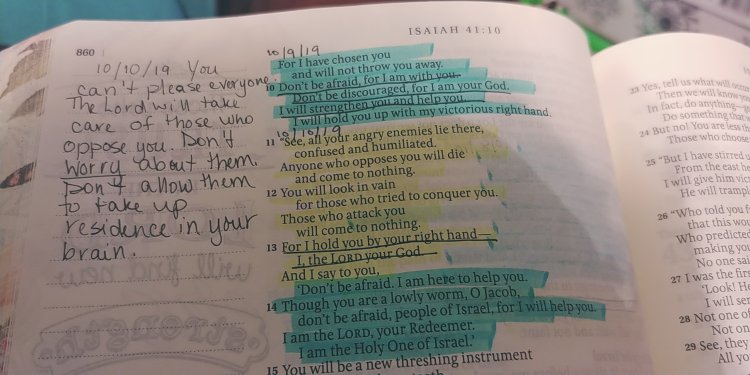 ISAIAH 41:10
860
10/10/19 You
can't please everyone.
The Lord will take
care of those who
oppose you. Don't
worry about them.
Don't allow them
to take up
residence in your
brain.
10/9/19
For I have chosen you
and will not throw you away.
10 Don't be afraid, for I am with you.
Don't be discouraged, for I am your God.
I will strengthen you and help you.
I will hold you up with my victorious right hand.
10/10/19
11 "See, all your angry enemies lie there,
confused and humiliated.
Anyone who opposes you will die
and come to nothing.
12 You will look in vain
for those who tried to conquer you.
Those who attack you
will come to nothing.
13 For I hold you by your right hand—
I, the LORD your God.
And I say to you,
'Don't be afraid. I am here to help you.
14 Though you are a lowly worm, O Jacob,
don't be afraid, people of Israel, for I will help you.
I am the LORD, your Redeemer.
I am the Holy One of Israel.'
15 You will be a new threshing instrument
23 Yes, tell us what will occur
Then we will know
In fact, do anything—
Do something that
24 But no! You are less
Those who choose
25 "But I have stirred
From the east he
I will give him vic
He will trampl
26 "Who told you f
that this wou
Who predicted
making you
No one sai
27 I was the fir
'Look! He
I will se
28 Not one of
Not on
29 See, they
All yo